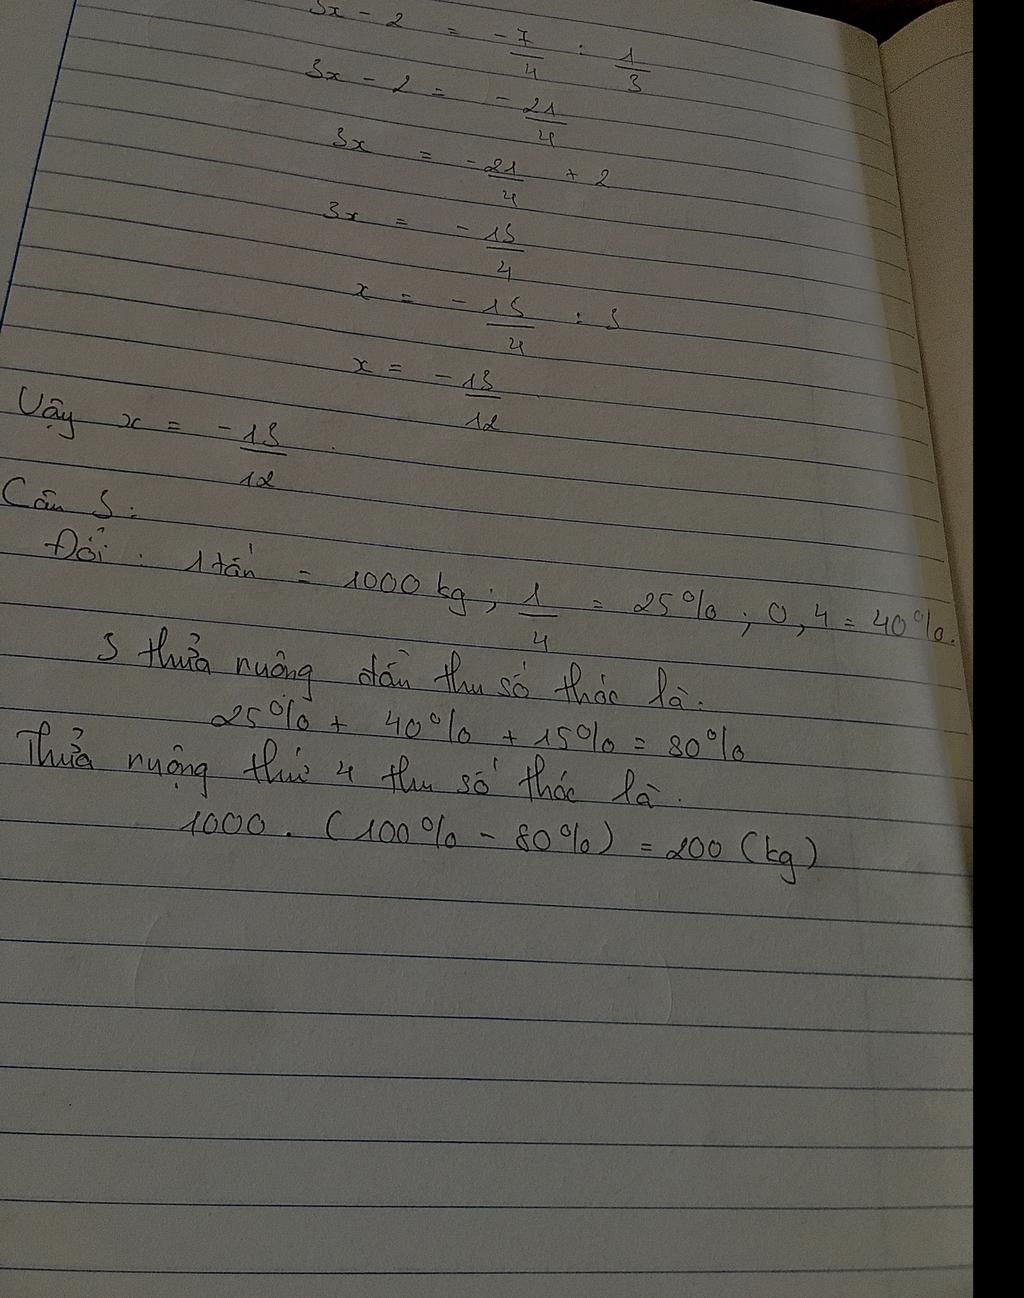 3x - 2 = -7/4 : 1/3
3x - 2 = -21/4
3x = -21/4 + 2
3x = -13/4
x = -13/4 : 3
x = -13/12
Vậy x = -13/12.
Câu 3:
Đổi: 1 tấn = 1000 kg; 1/4 = 25%; 0,4 = 40%.
3 thửa ruộng đầu thu số thóc là:
25% + 40% + 15% = 80%
Thửa ruộng thứ 4 thu số thóc là:
1000 . (100% - 80%) = 200 (kg)